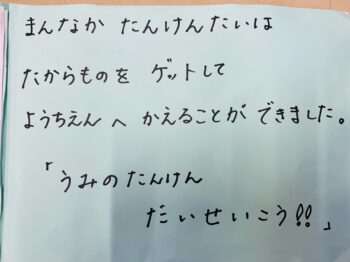 まんなか たんけんたいは
たからものを ゲットして
ようちえん へ かえることが できました。
「うみのたんけん
だいせいこう!!」